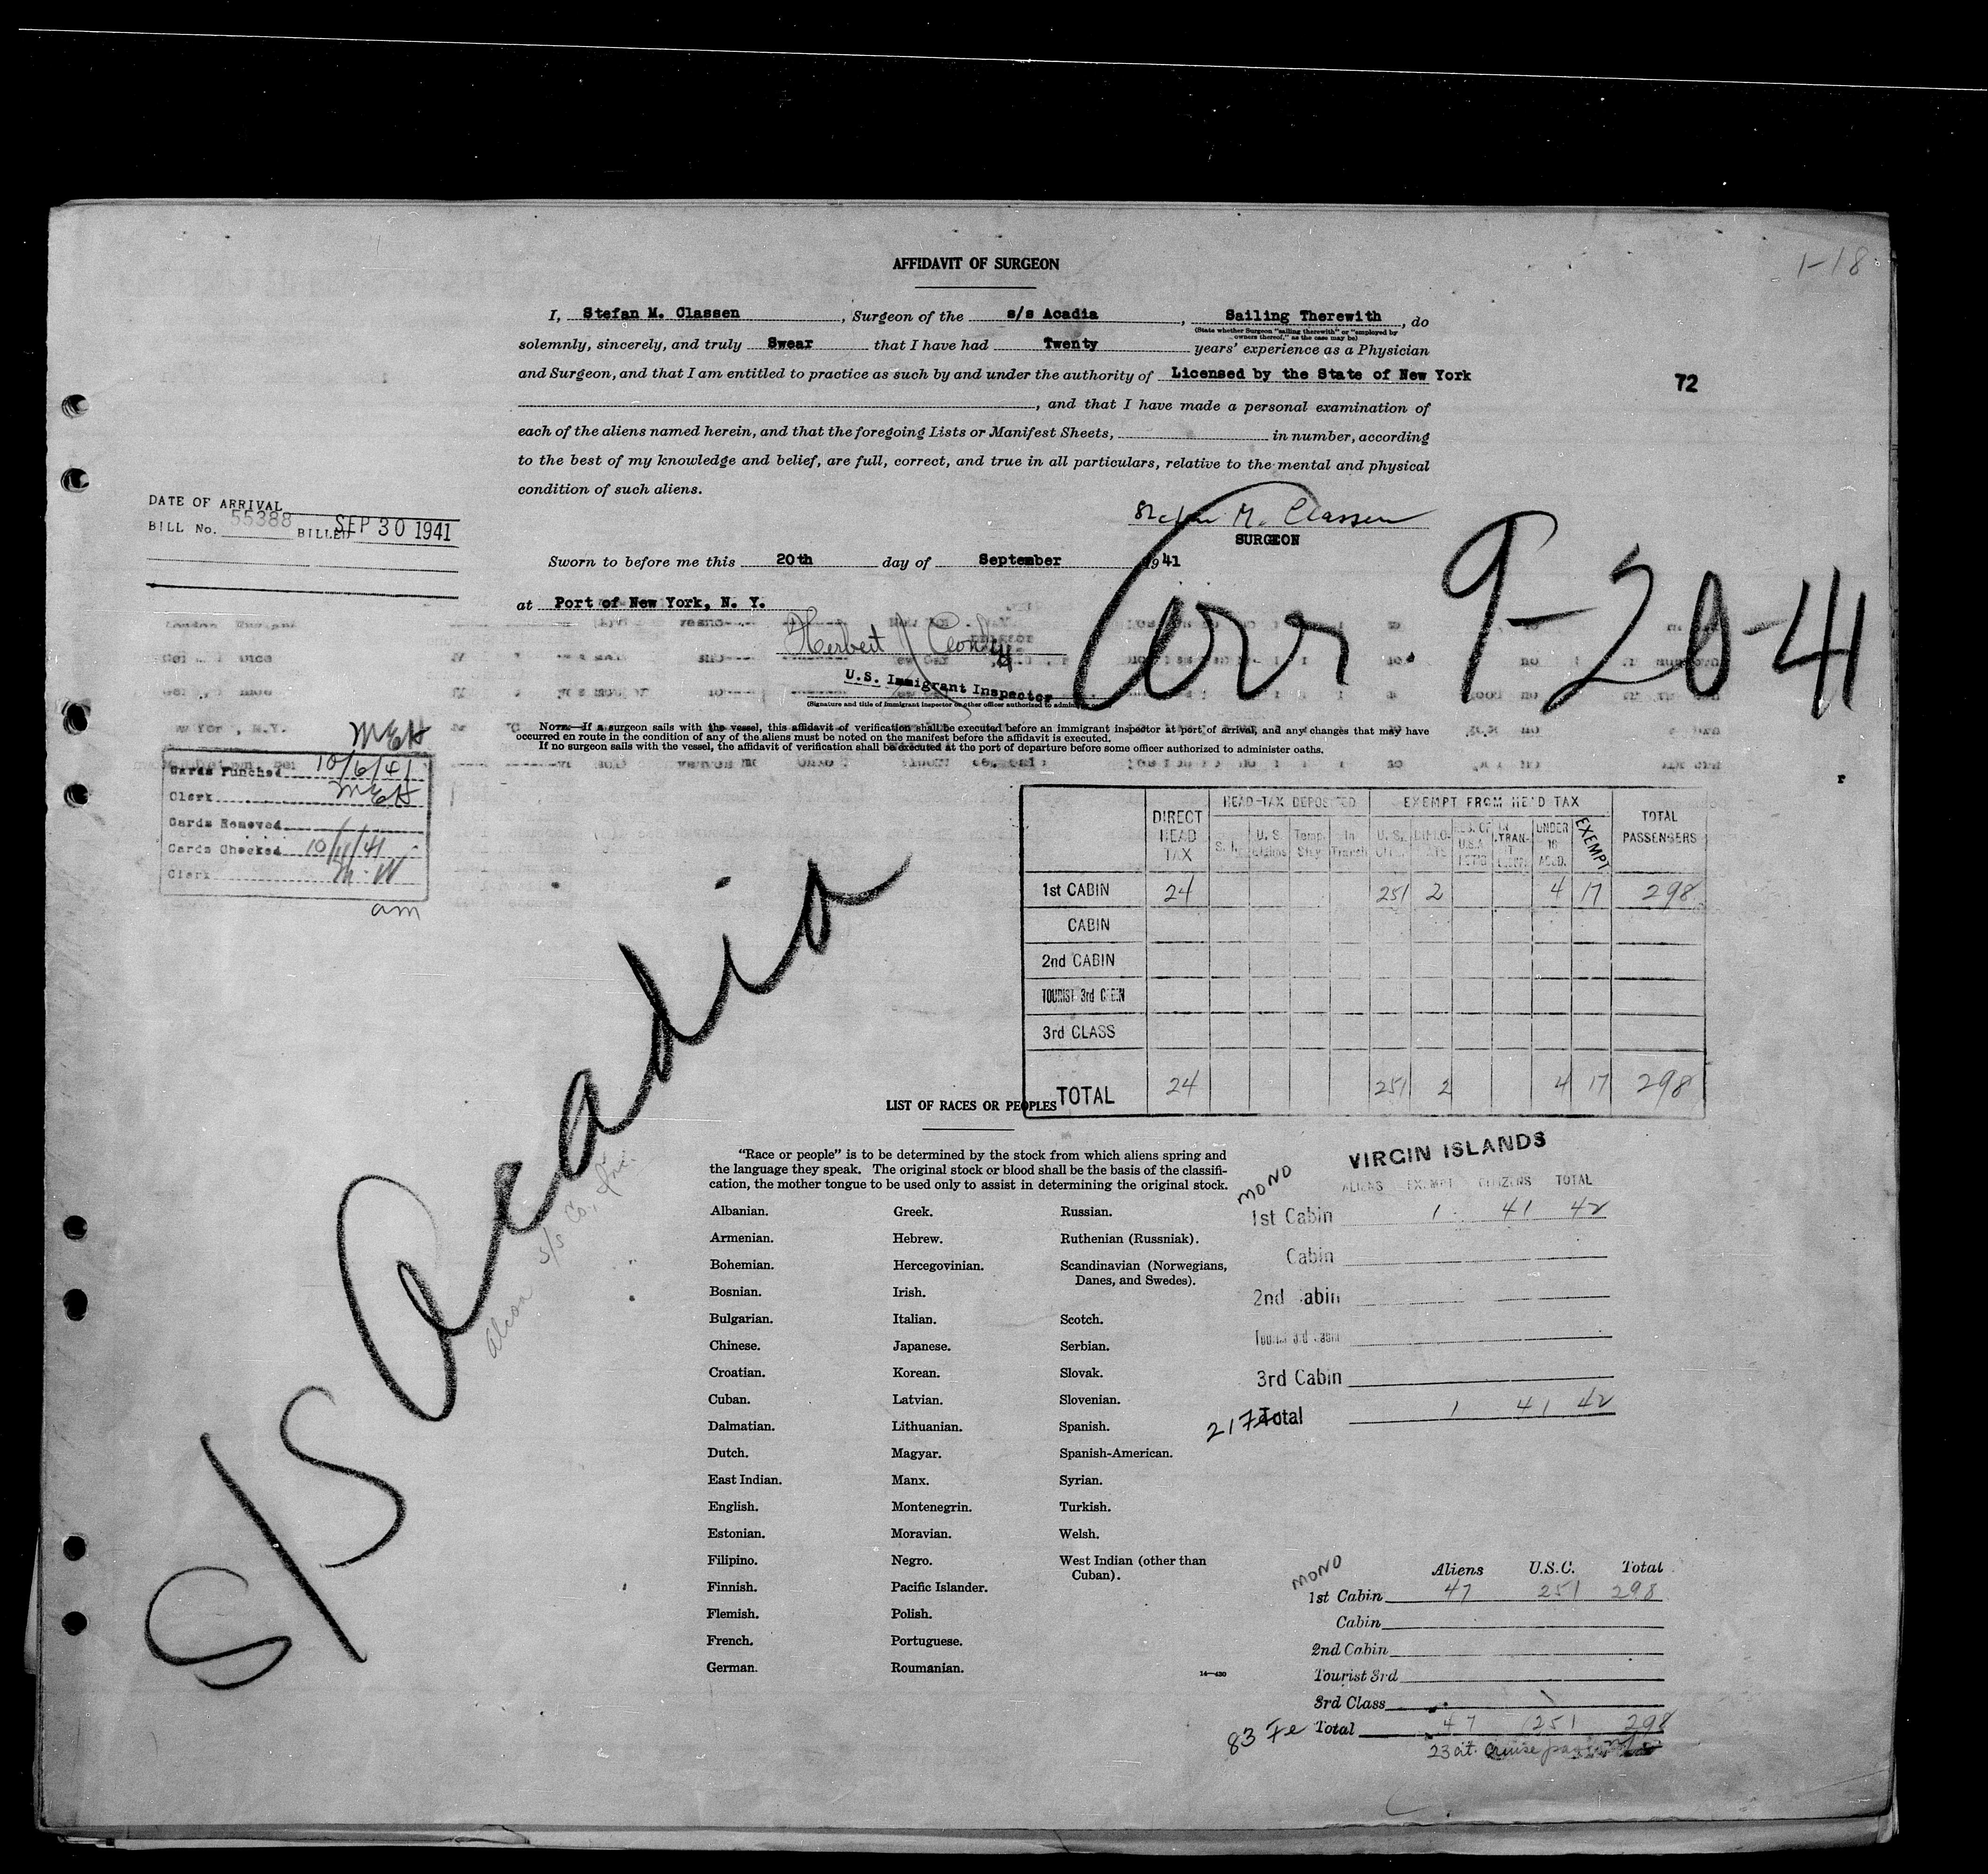 1-18
AFFIDAVIT OF SURGEON
I, Stefan M. Classen, Surgeon of the s/s Acadia, Sailing Therewith, do
(State whether Surgeon "sailing therewith" or "employed by
owners thereof," as the case may be)
solemnly, sincerely, and truly Swear that I have had Twenty years' experience as a Physician
and Surgeon, and that I am entitled to practice as such by and under the authority of Licensed by the State of New York
72
, and that I have made a personal examination of
each of the aliens named herein, and that the foregoing Lists or Manifest Sheets, in number, according
to the best of my knowledge and belief, are full, correct, and true in all particulars, relative to the mental and physical
condition of such aliens.
DATE OF ARRIVAL
BILL No. 55388 BILLED SEP 30 1941
Stefan M. Classen
SURGEON
Sworn to before me this 20th day of September 1941
at Port of New York, N. Y.
Arr. 9-20-41
Herbert J
U.S. Immigrant Inspector
(Signature and title of immigrant inspector or other officer authorized to
NOTE.—If a surgeon sails with the vessel, this affidavit of verification shall be executed before an immigrant inspector at port of arrival, and any changes that may have
occurred en route in the condition of any of the aliens must be noted on the manifest before the affidavit is executed.
If no surgeon sails with the vessel, the affidavit of verification shall be executed at the port of departure before some officer authorized to administer oaths.
MEH
Cards Punched 10/6/41
Clerk MEH
Cards Removed
Cards Checked 10/11/41
Clerk M. W
am
DIRECT HEAD TAX
HEAD-TAX DEPOSITED
EXEMPT FROM HEAD TAX
TOTAL PASSENGERS
U. S. Temp. Stay In Transit
UNDER 16 ACCD. EXEMPT
1st CABIN 24 251 2 4 17 298
CABIN
2nd CABIN
TOURIST 3rd CABIN
3rd CLASS
TOTAL 24 251 2 4 17 298
S/S Acadia
Alcoa S/S Co., Inc.
LIST OF RACES OR PEOPLES
"Race or people" is to be determined by the stock from which aliens spring and
the language they speak. The original stock or blood shall be the basis of the classifi-
cation, the mother tongue to be used only to assist in determining the original stock.
Albanian. Greek. Russian.
Armenian. Hebrew. Ruthenian (Russniak).
Bohemian. Hercegovinian. Scandinavian (Norwegians,
Danes, and Swedes).
Bosnian. Irish.
Bulgarian. Italian. Scotch.
Chinese. Japanese. Serbian.
Croatian. Korean. Slovak.
Cuban. Latvian. Slovenian.
Dalmatian. Lithuanian. Spanish.
Dutch. Magyar. Spanish-American.
East Indian. Manx. Syrian.
English. Montenegrin. Turkish.
Estonian. Moravian. Welsh.
Filipino. Negro. West Indian (other than
Cuban).
Finnish. Pacific Islander.
Flemish. Polish.
French. Portuguese.
German. Roumanian.
16—430
VIRGIN ISLANDS
MONO
ALIENS EXEMPT CITIZENS TOTAL
1st Cabin 1 41 42
Cabin
2nd Cabin
Tourist 3rd Cabin
3rd Cabin
Total 1 41 42
MONO
Aliens U.S.C. Total
1st Cabin 47 251 298
Cabin
2nd Cabin
Tourist 3rd
3rd Class
83 Fe Total 47 251 298
23 cit. cruise